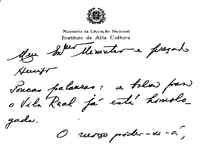 Ministério da Educação Nacional
Instituto de Alta Cultura
Meu Exmo Mencatar e prezado
Amigo
Poucas palavras: a bolsa para
o Vila Real já está homolo
gada.
O nosso poder-se-á,